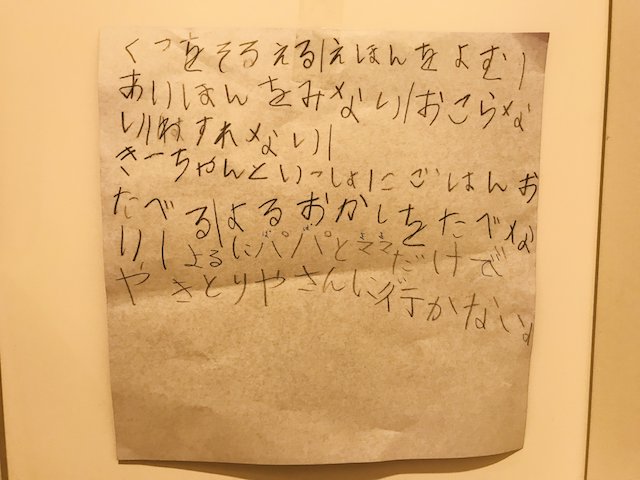 くつをそろえる|えほんをよむ|
ありほんをみない|おこらな
い|わすれない|
きーちゃんといっしょにごはんお
たべる|よるおかしをたべな
い|よるにパパとママだけで
やきとりやさんに行かない。